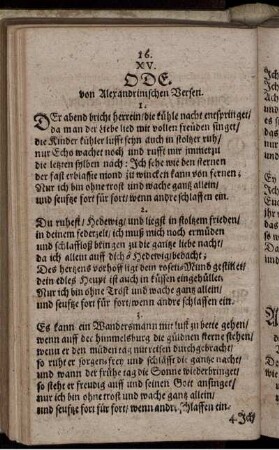 16.
XV.
ODE.
von Alexandrinischen Versen.
1.
DEr abend bricht herrein/ die kühle nacht entspringet/
da man der Liebe lied mit vollen freüden singet/
die Kinder kühler lufft seyn auch in stoltzer ruh/
nur Echo wachet noch und rufft mir immerzu
die letzen sylben nach: Ich sehe wie den sternen
der fast erblaste mond zu wincken kann von fernen;
Nur ich bin ohne trost und wache gantz allein/
und seufftze fort für fort/ wenn andre schlaffen ein.
2.
Du ruhest/ Hedewig/ und liegst in stoltzem frieden/
in deinem federzelt/ ich muß mich noch ermüden
und schlafflooß bringen zu die gantze liebe nacht/
da ich allein auff dich Hedewig bedacht;
Des hertzens vorhoff ligt dein rosen-Mund gestillet/
dein edles Heupt ist auch in küssen eingehüllet
Nur ich bin ohne Trost und wache gantz allein/
und seufftze fort für fort/ wenn andre schlaffen ein.
3.
Es kann ein Wandersmann mit lust zu bette gehen/
wenn auff der himmelsburg die güldnen sterne stehen/
wenn er den müden tag mit reisen durchgebracht/
so ruht er sorgen-frey und schläfft die gantze nacht/
und wann der frühe tag die Sonne wiederbringet/
so steht er freudig auff und seinen Gott ansinget/
nur ich bin ohne trost und wache gantz allein/
und seufftze fort für fort/ wenn andre schlaffen ein.
4. Ich